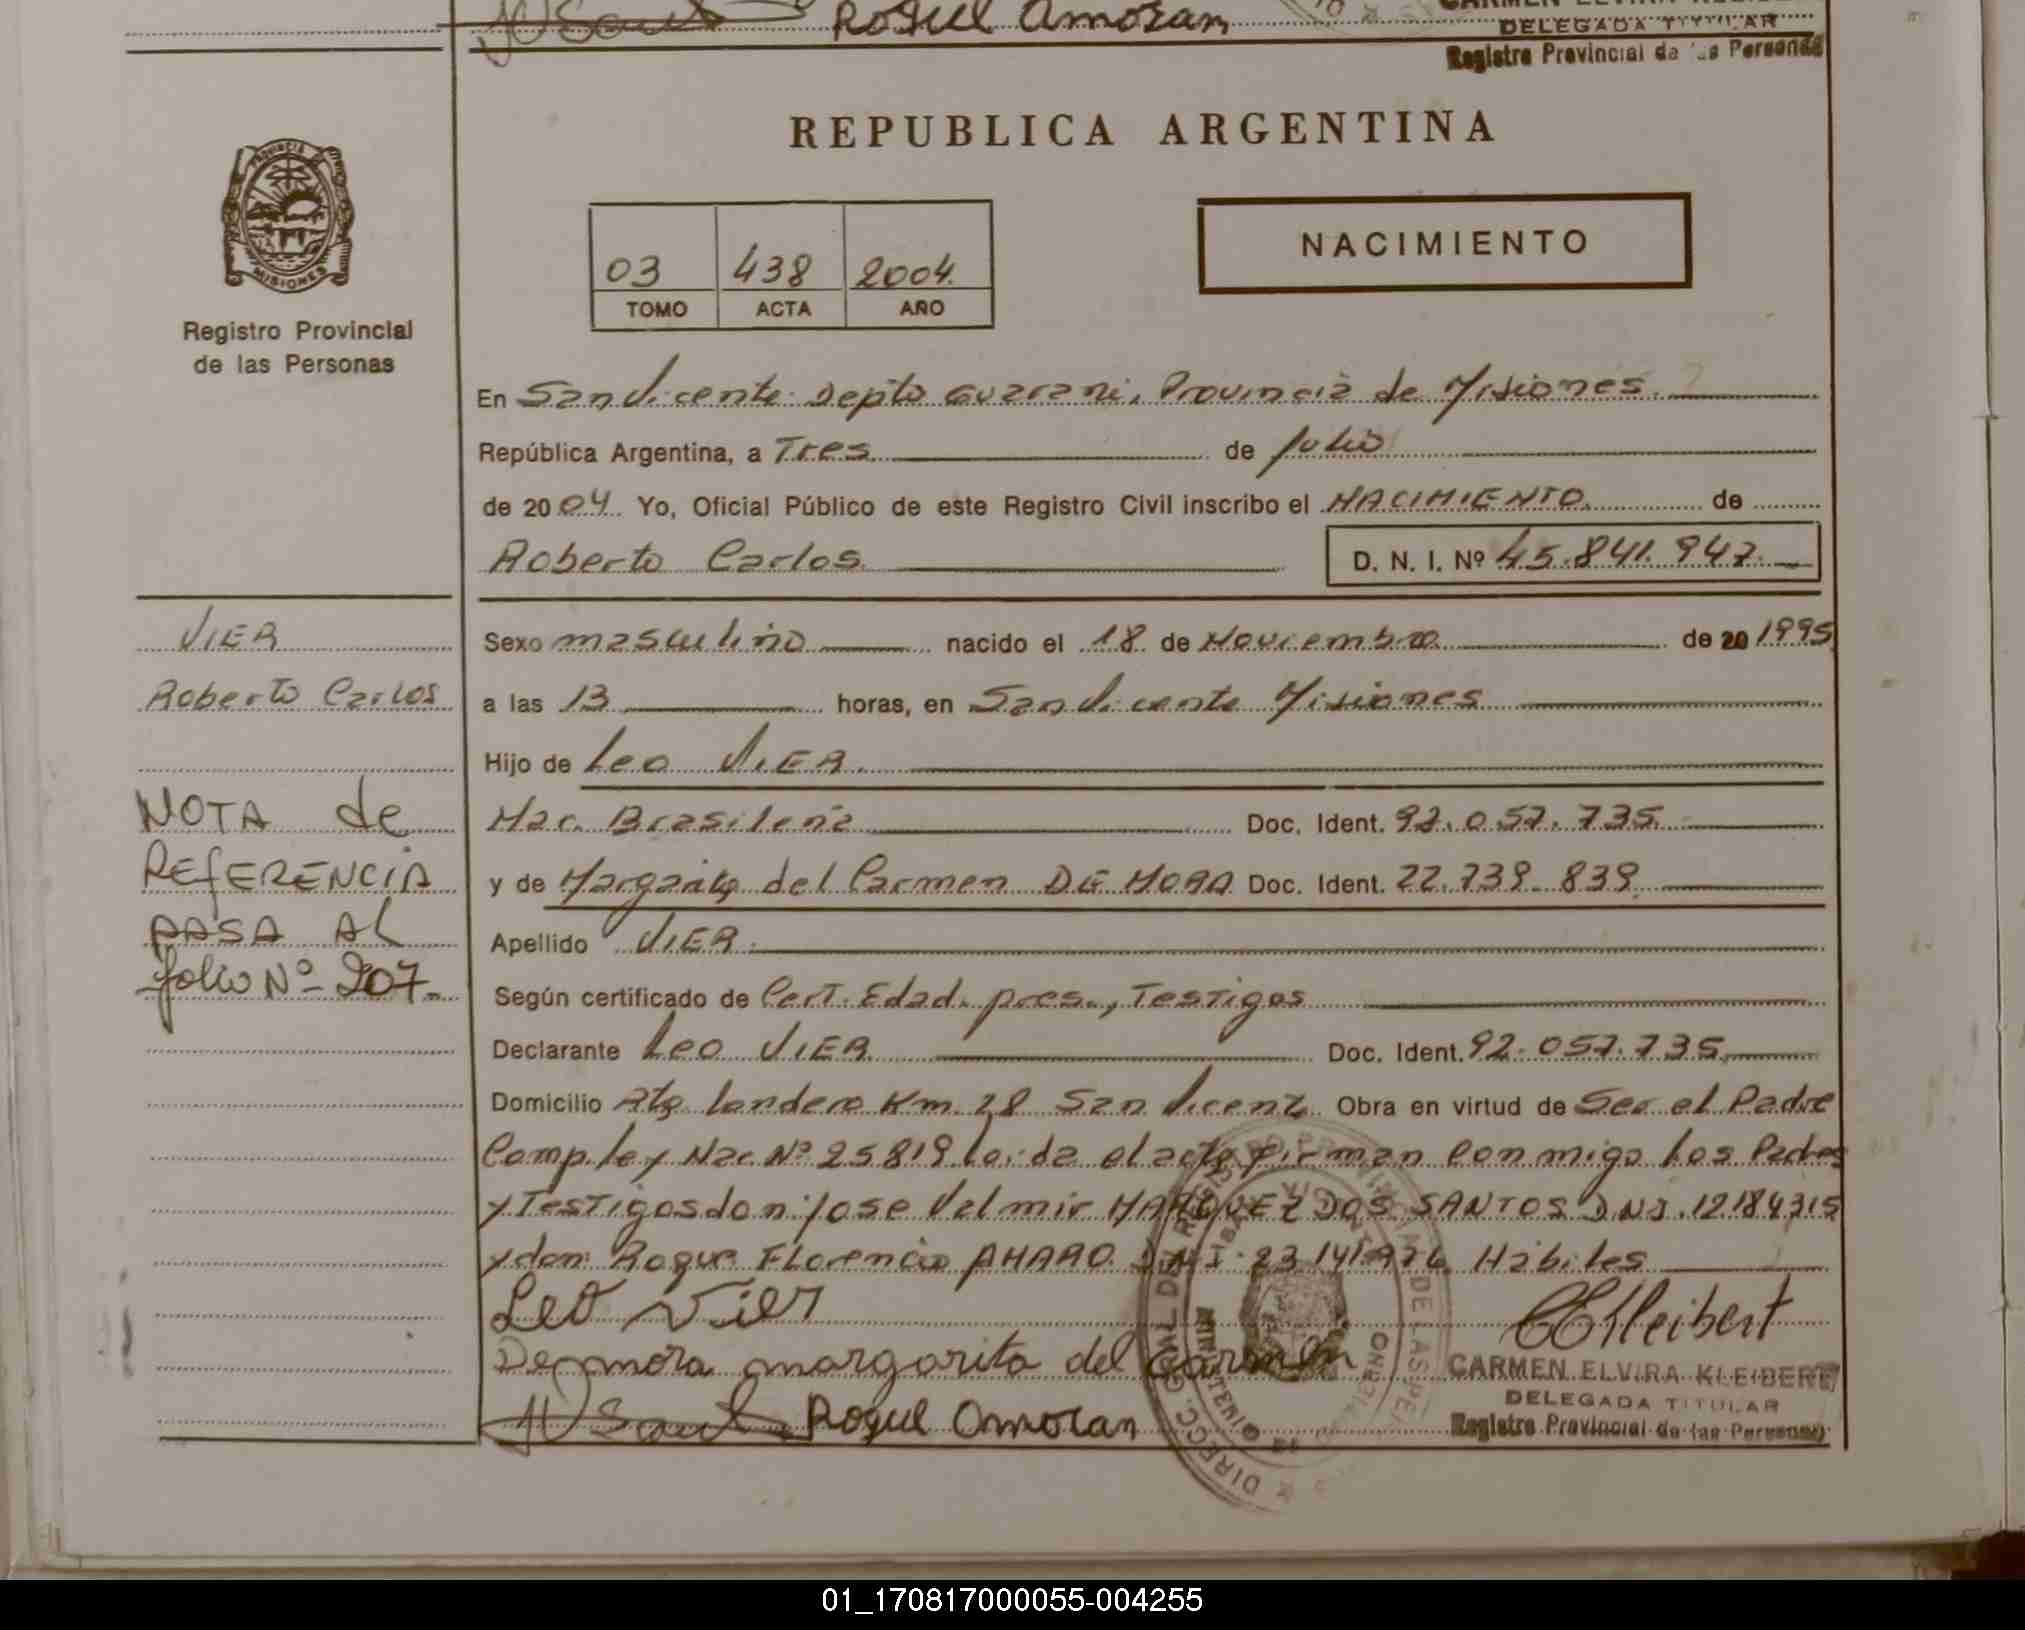 Roqul Amoran
DELEGADA TITULAR
Registro Provincial de las Personas
REPUBLICA ARGENTINA
PROVINCIA DE
MISIONES
Registro Provincial
de las Personas
03 438 2004.
TOMO ACTA AÑO
NACIMIENTO
En San Vicente Depto Guarani, Provincia de Misiones.
República Argentina, a Tres de Julio
de 2004 Yo, Oficial Público de este Registro Civil inscribo el NACIMIENTO de
Roberto Carlos D. N. I. Nº 45.841.947.
VIER
Roberto Carlos
NOTA de
REFERENCIA
PASA AL
folio Nº 207.
Sexo masculino nacido el 18 de Noviembre de 20 1995
a las 13 horas, en San Vicente Misiones
Hijo de Leo VIER.
Nac. Brasileña Doc. Ident. 92.057.735.
y de Margarita del Carmen DE MORA Doc. Ident. 22.739.839
Apellido VIER.
Según certificado de Cert. Edad. pres., Testigos
Declarante Leo VIER Doc. Ident. 92.057.735.
Domicilio Km 28 San Vicente Obra en virtud de Ser el Padre
Comp. ley Nac. Nº 25819 Leida el acta firman conmigo los Padres
y Testigos don: Jose Valmir MARQUEZ DOS SANTOS DNI. 12184315
y don: Roque Florencio AMARO DNI. 23141976 Habiles
Leo Vier
De mora margarita del Carmen
Roqul Amoran
CEKleibert
CARMEN ELVIRA KLEIBERT
DELEGADA TITULAR
Registro Provincial de las Personas
01_170817000055-004255